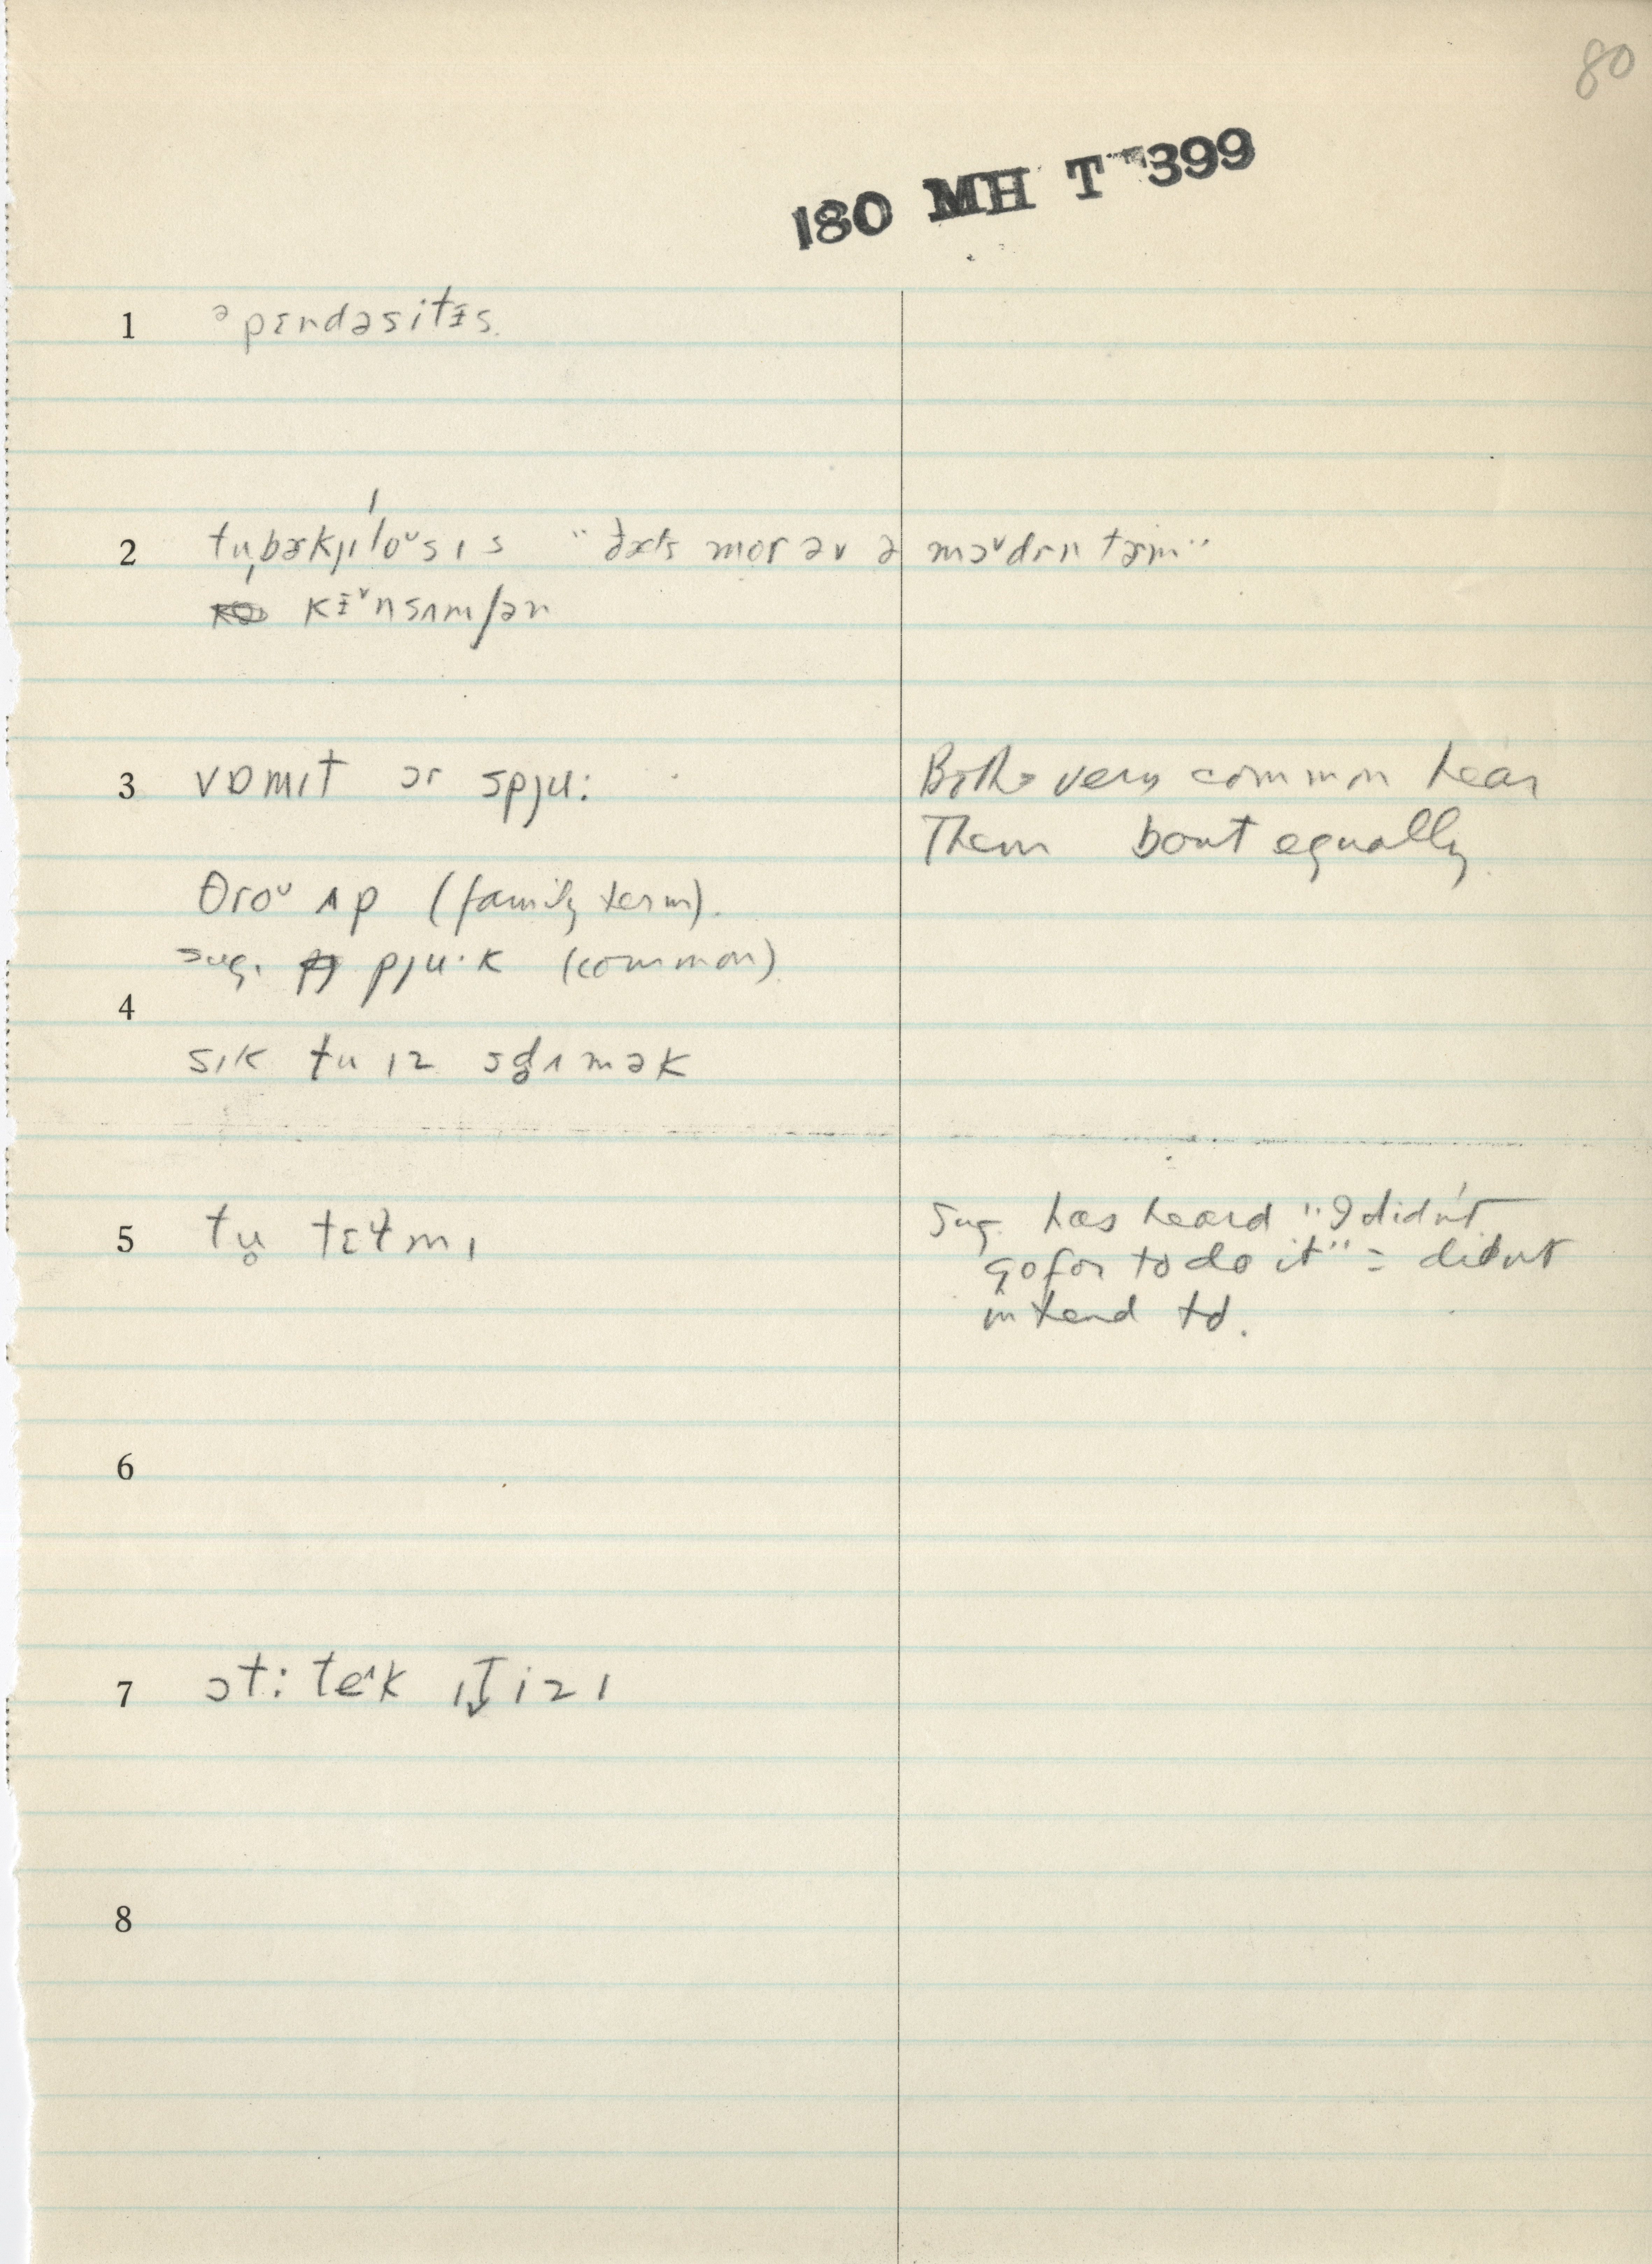 80
180 MH T 399
1 əpɛndəsitɨs
2 tu̧bɚkjɪloᵛsɪs "ðæts mor əv ə mɔᵛdɚn tɚm"
kɨᵛnsʌmʃən
3 vɒmɪt ɔr spju: Both very common hear
Them bout equally
θroᵛ ʌp (family term).
sug. pju·k (common)
4
sɪk tu ɪz sd̥ʌmək
5 tu̥ tɛɫmɪ Sug. has heard "I didn't
go for to do it" = didnt
intend to.
6
7 ɔt: teˆk ɪt̬ izɪ
8